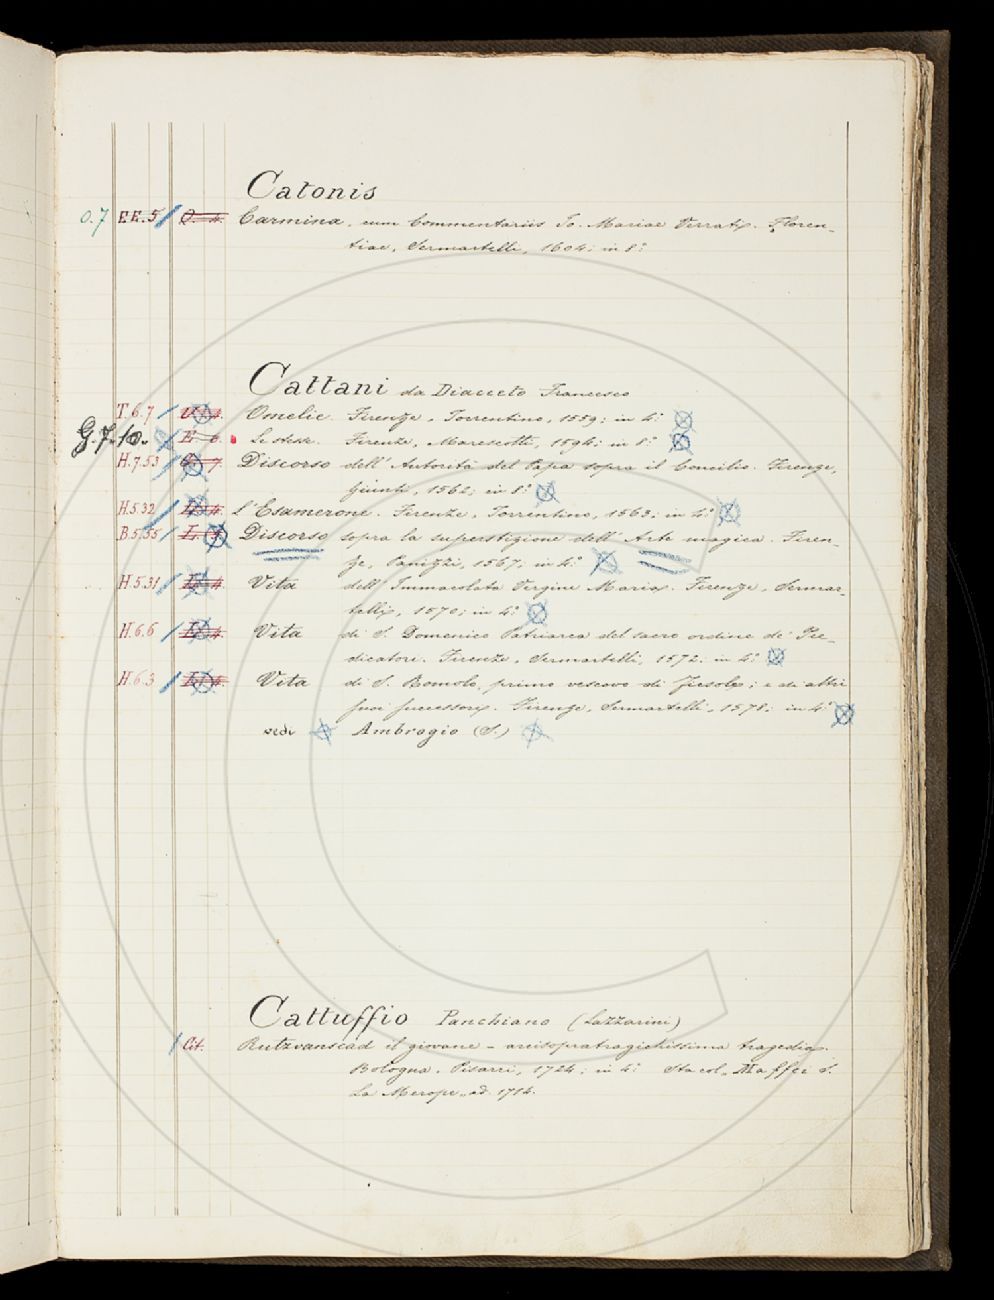 Catonis
O.7 EE.5 O. 4. Carmina, cum Commentariis Jo. Mariae Verrati. Floren-
tiae, Sermartelli, 1604; in 8.°
Cattani da Diacceto Francesco
T.6.7 Omelie. Firenze, Torrentino, 1559; in 4.°
G.7.10. E. 6. Le stesse. Firenze, Marescotti, 1594; in 8.°
H.7.53 Discorso dell' Autorità del Papa sopra il Concilio. Firenze,
Giunti, 1562; in 8.°
H.5.32 L'Esamerone. Firenze, Torrentino, 1563; in 4.°
B.5.55 Discorso sopra la superstizione dell' Arte magica. Firen-
ze, Panizzi, 1567; in 4.°
H.5.31 Vita dell' Immacolata Vergine Maria. Firenze, Sermar-
telli, 1570; in 4.°
H.6.6 Vita di S. Domenico Patriarca del sacro ordine de' Pre-
dicatori. Firenze, Sermartelli, 1572; in 4.°
H.6.3 Vita di S. Romolo, primo vescovo di Fiesole; e di altri
suoi successori. Firenze, Sermartelli, 1578; in 4.°
vedi Ambrogio (S.)
Cattuffio Panchiano (Lazzarini)
Cit. Rutzvanscad il giovane - arcisopratragichissima tragedia.
Bologna, Pisarri, 1724; in 4.° Sta col. Maffei S.
La Merope, ed. 1714.